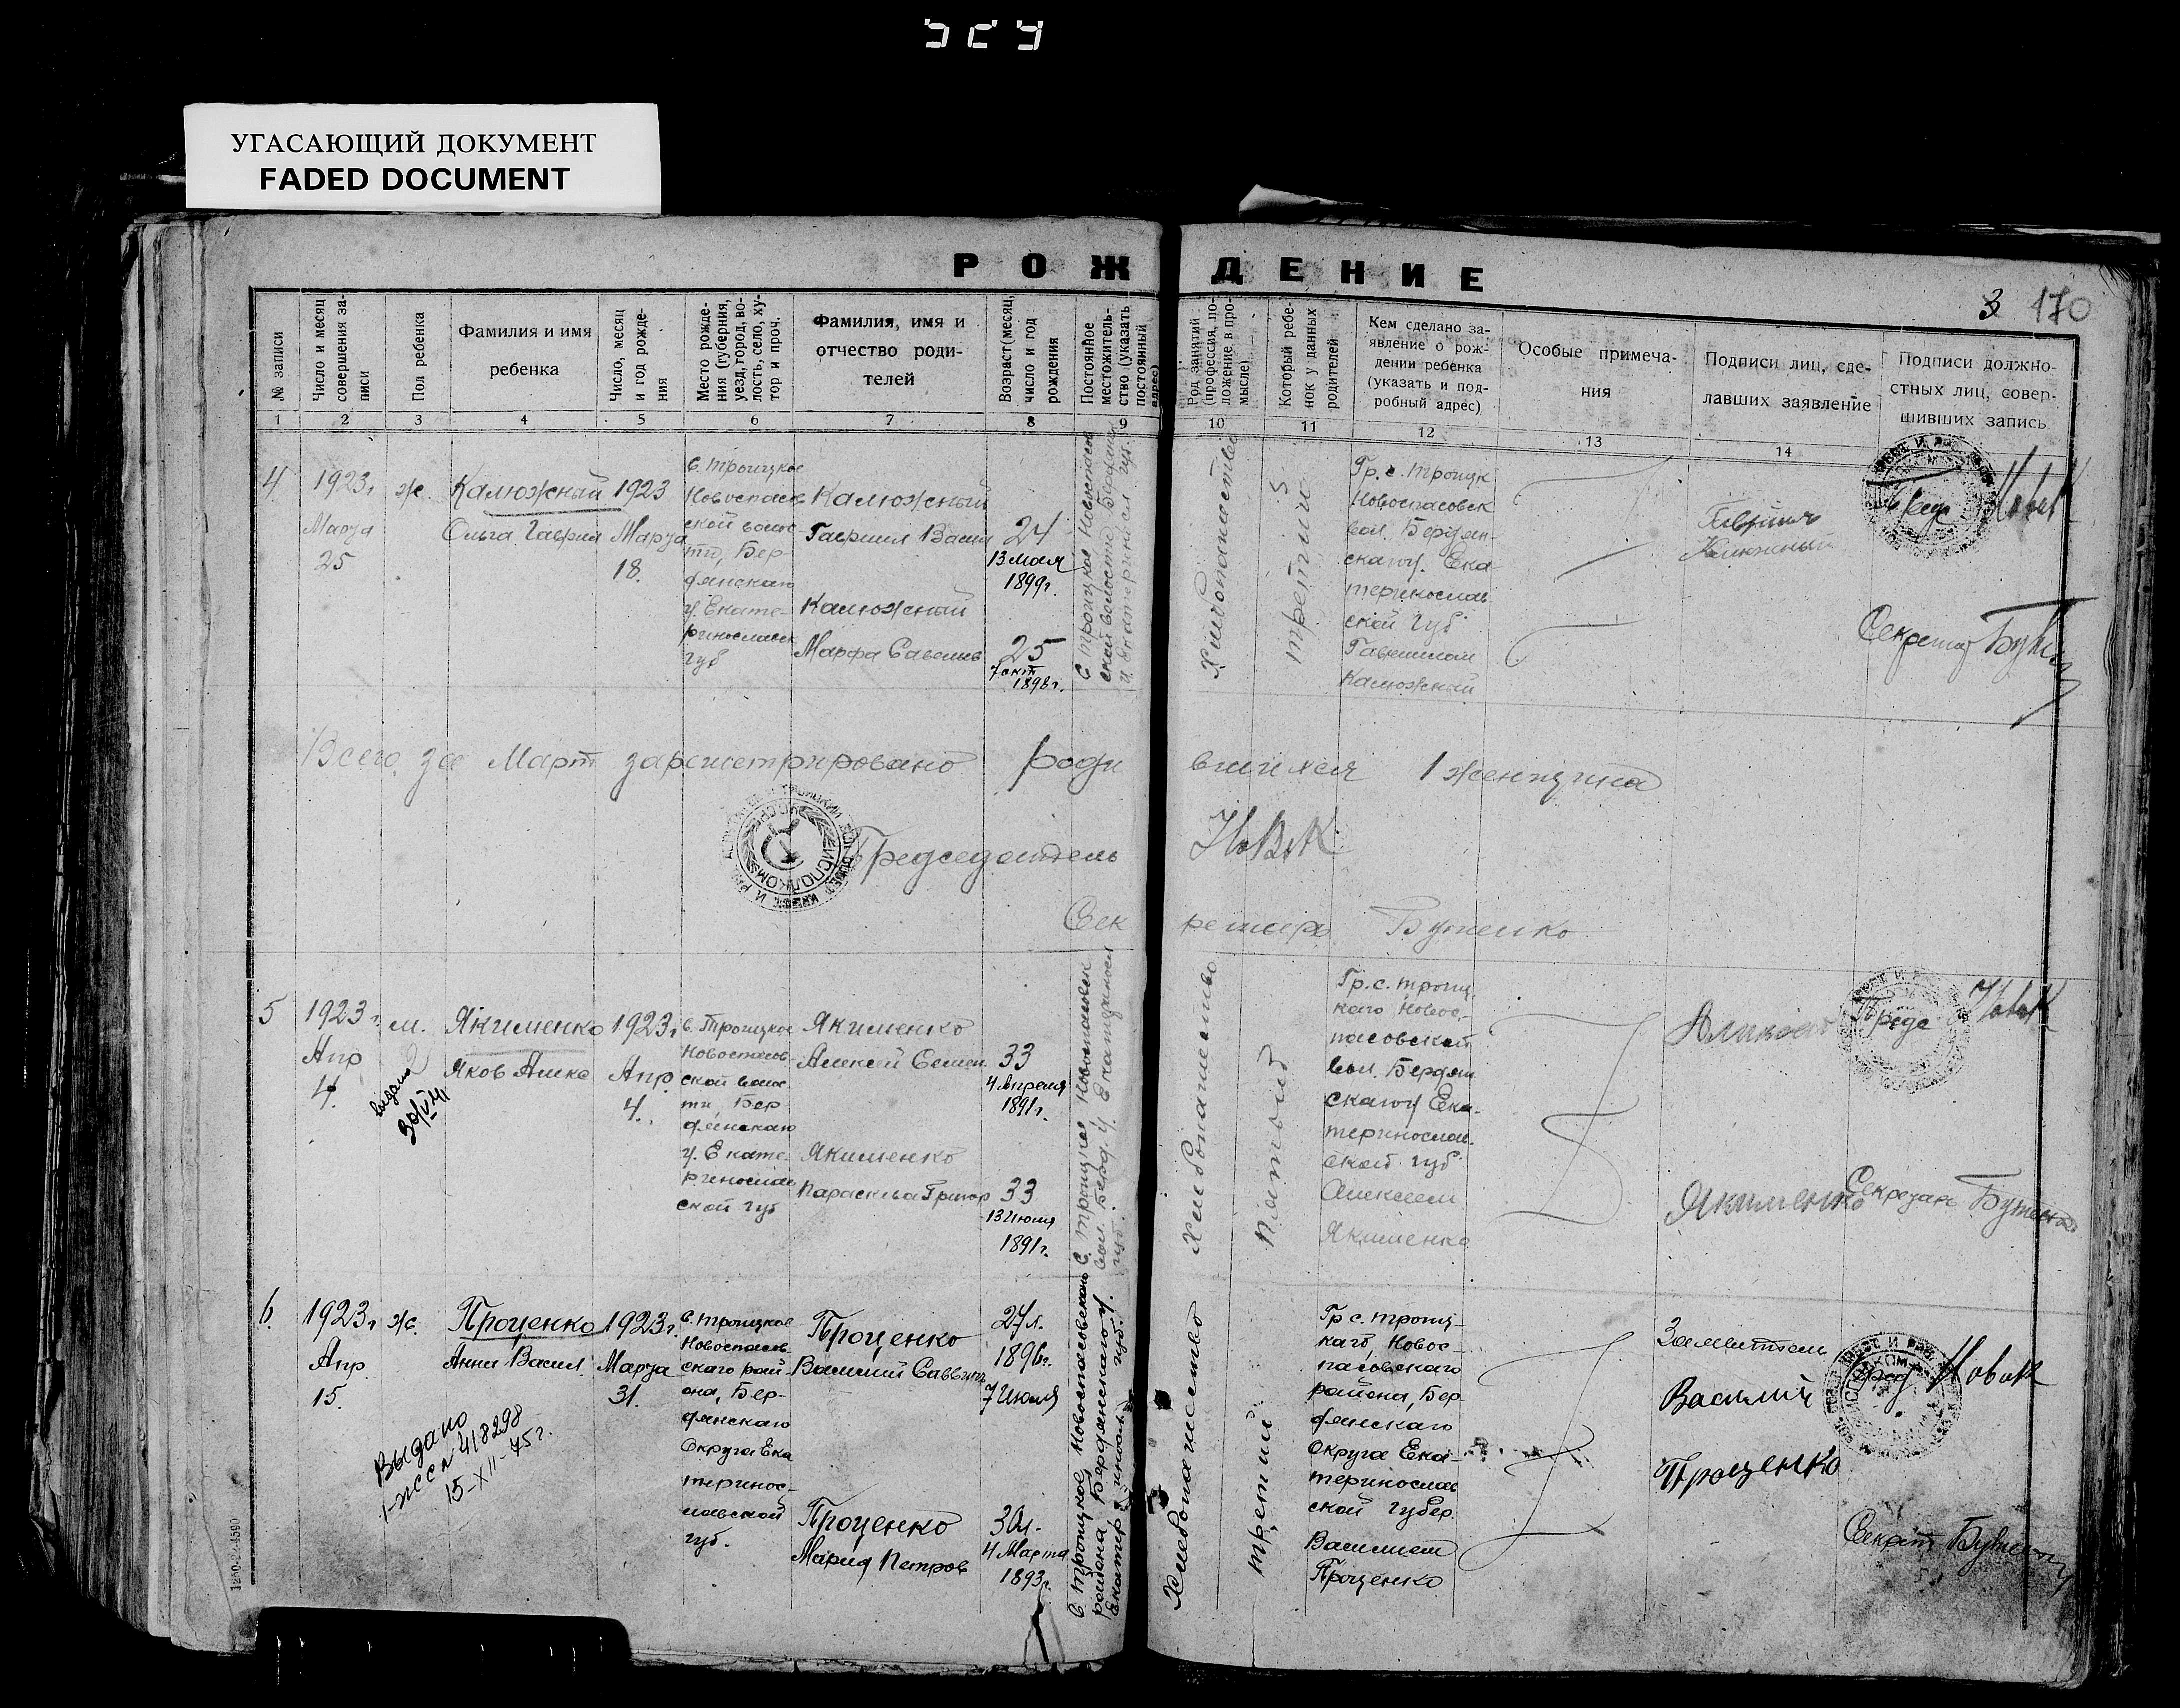 УГАСАЮЩИЙ ДОКУМЕНТ
FADED DOCUMENT
РОЖДЕНИЕ
3 170
№ записи
Число и месяц
совершения за-
писи
Пол ребенка
Фамилия и имя
ребенка
Число, месяц
и год рожде-
ния
Место рожде-
ния (губерния,
уезд, город, во-
лость, село, ху-
тор и проч.
Фамилия, имя и
отчество роди-
телей
Возраст (месяц,
число и год
рождения
Постоянное
местожитель-
ство (указать
постоянный
адрес)
Род занятий
(профессия, по-
ложение в про-
мысле)
Который ребе-
нок у данных
родителей
Кем сделано за-
явление о рож-
дении ребенка
(указать и под-
робный адрес)
Особые примеча-
ния
Подписи лиц, сде-
лавших заявление
Подписи должно-
стных лиц, совер-
шивших запись
1 2 3 4 5 6 7 8 9 10 11 12 13 14
4
1923г
Марта
25
ж.
Калюжный
Ольга Гаврил
1923
Марта
18.
с. Троицкое
Новоспасов
ской волос
ти, Бер-
дянскаго
у. Екате-
ринославск
губ
Калюжный
Гавриил Васил
Калюжный
Марфа Савельев
24
13 мая
1899г.
25
7 окт
1898г.
С Троицкое Новоспасов
ской волости Бердянск
Хлебопашество
третий
Гр. с. Троицк
Новоспасовск
вол. Бердян-
скаго у. Ека
теринослав
ской губ
Гавриилом
Калюжный
Калюжный
Пред Новак
Секретар
Всего за Март зарегистрировано роди
вшихся 1 женщина
Председатель
Новак
Секретарь Бутенко
5
1923г.
Апр
4.
м.
выдано
30/V 41
Якименко
Яков Алекс
1923г
Апр
4.
с. Троицкое
Новоспасов-
ской волос
ти, Бер
дянскаго
у. Екате-
ринослав
ской губ
Якименко
Алексей Семен.
Якименко
Параскева Григор
33
4 Апреля
1891г.
33
13 Июля
1891г.
С. Троицкое Новоспасовск
вол. Берд. у. Екатериносл
губ.
Хлебопашество
пятой
Гр. с. Троиц.
каго Новос-
пасовской
вол. Бердян
скаго у Ека-
теринослав.
ской губ
Алексеем
Якименко
Якименко
Пред Новак
Секретарь Бутенко
6.
1923г
Апр
15.
ж.
Выдано
1-ЖС № 418298
15-XII-75г.
Проценко
Анна Васил
1923г.
Марта
31.
с. Троицкое
Новоспасов-
скаго рай-
она, Бер-
дянскаго
Округа Ека
теринос-
лавской
губ.
Проценко
Василий Саввич
Проценко
Мария Петров
27л.
1896г.
7 Июля
30л.
4 Марта
1893г.
С. Троицкое, Новоспасовскаго
района Бердянскаго у.
Хлебопашество
третий
Гр с. Троиц-
каго, Новос-
пасовскаго
района, Бер
дянскаго
Округа Ека-
теринослав
ской губер.
Василием
Проценко
Заявитель
Василий
Проценко
Пред Новак
Секрет